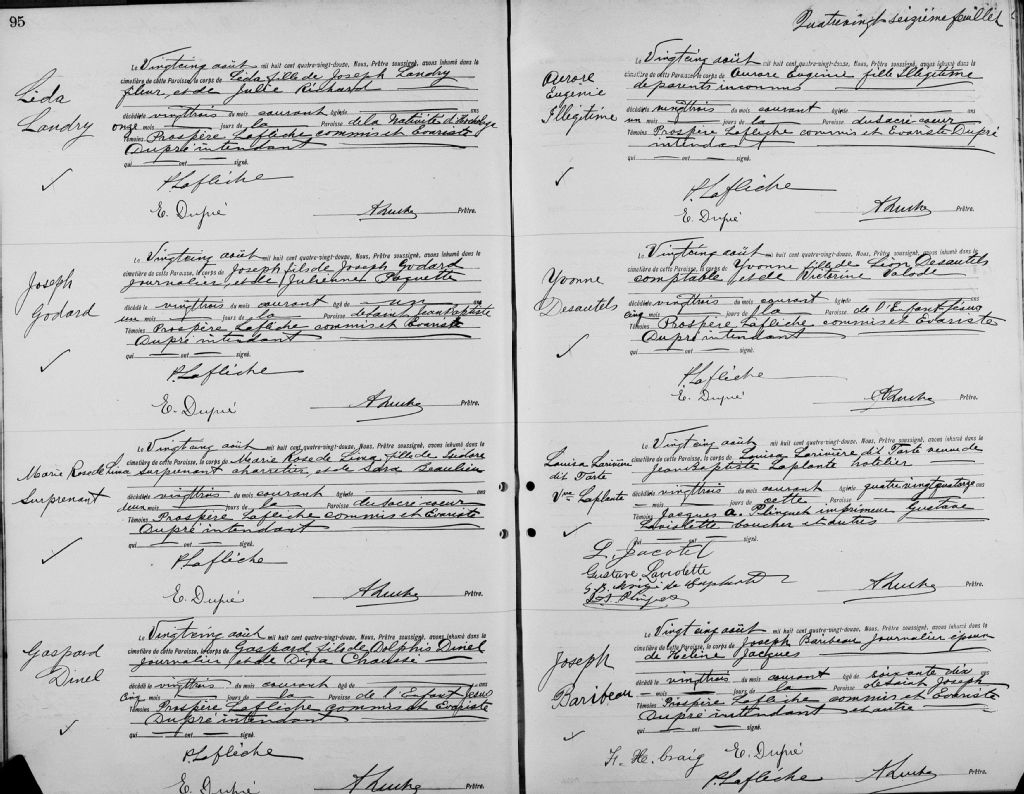 95
Lida
Landry
Le Vingtcinq août mil huit cent quatre-vingt-douze, Nous, Prêtre soussigné, avons inhumé dans le
cimetière de cette Paroisse, le corps de Lida fille de Joseph Landry
fleur, et de Julie Richard
décédée le vingttrois du mois courant âgée de ans
onze mois jours de la Paroisse de la Nativité d'Hochelaga
Témoins Prospère Laflèche commis et Evariste
Dupré intendant
qui ont signé.
P. Laflèche
E. Dupré
Prêtre.
Joseph
Godard
Le Vingtcinq août mil huit cent quatre-vingt-douze, Nous, Prêtre soussigné, avons inhumé dans le
cimetière de cette Paroisse, le corps de Joseph fils de Joseph Godard
journalier et de Julienne Paquette
décédé le vingttrois du mois courant âgé de un ans
un mois jours de la Paroisse de saint Jean Baptiste
Témoins Prospère Laflèche commis et Evariste
Dupré intendant
qui ont signé.
P. Laflèche
E. Dupré
Prêtre.
Marie Rose de Lima
Surprenant
Le Vingtcinq août mil huit cent quatre-vingt-douze, Nous, Prêtre soussigné, avons inhumé dans le
cimetière de cette Paroisse, le corps de Marie Rose de Lima fille de Isidore
Surprenant charretier, et de Sara Beaulieu
décédée le vingttrois du mois courant âgée de ans
deux mois jours de la Paroisse du sacré-coeur
Témoins Prospère Laflèche commis et Evariste
Dupré intendant
qui ont signé.
P. Laflèche
E. Dupré
Prêtre.
Gaspard
Dinel
Le Vingtcinq août mil huit cent quatre-vingt-douze, Nous, Prêtre soussigné, avons inhumé dans le
cimetière de cette Paroisse, le corps de Gaspard fils de Dolphis Dinel
journalier et de Dina Chaussé
décédé le vingttrois du mois courant âgé de ans
cinq mois jours de la Paroisse de l'Enfant Jesus
Témoins Prospère Laflèche commis et Evariste
Dupré intendant
qui ont signé.
P. Laflèche
E. Dupré
Prêtre.
Quatrevingt seizième feuillet
Aurore
Eugenie
Illégitime
Le Vingtcinq août mil huit cent quatre-vingt-douze, Nous, Prêtre soussigné, avons inhumé dans le
cimetière de cette Paroisse, le corps de Aurore Eugenie fille Illégitime
de parents inconnus
décédée le vingttrois du mois courant âgée de ans
un mois jours de la Paroisse du sacré-coeur
Témoins Prospère Laflèche commis et Evariste Dupré
intendant
qui ont signé.
P. Laflèche
E. Dupré
Prêtre.
Yvonne
Desautels
Le Vingtcinq août mil huit cent quatre-vingt-douze, Nous, Prêtre soussigné, avons inhumé dans le
cimetière de cette Paroisse, le corps de Yvonne fille de Léon Desautels
comptable et de Victorine Valade
décédée le vingttrois du mois courant âgée de ans
cinq mois jours de la Paroisse de l'Enfant Jésus
Témoins Prospère Laflèche commis et Evariste
Dupré intendant
qui ont signé.
P. Laflèche
E. Dupré
Prêtre.
Louisa Larivière
dit Tarte
Vve Laplante
Le Vingtcinq août mil huit cent quatre-vingt-douze, Nous, Prêtre soussigné, avons inhumé dans le
cimetière de cette Paroisse, le corps de Louisa Larivière dit Tarte veuve de
Jean Baptiste Laplante hôtelier
décédée le vingttrois du mois courant âgée de quatre vingt quatorze ans
mois jours de cette Paroisse
Témoins Jacques A. Plinguet imprimeur Gustave
Laviolette boucher et autres
qui ont signé.
L. Jacotel
Gustave Laviolette
Prêtre.
Joseph
Baribeau
Le Vingtcinq août mil huit cent quatre-vingt-douze, Nous, Prêtre soussigné, avons inhumé dans le
cimetière de cette Paroisse, le corps de Joseph Baribeau journalier époux
de Helène Jacques
décédé le vingttrois du mois courant âgé de soixante dix ans
mois jours de la Paroisse de saint Joseph
Témoins Prospère Laflèche, commis et Evariste
Dupré intendant et autre
qui ont signé.
F. H. Craig E. Dupré
P. Laflèche Prêtre.